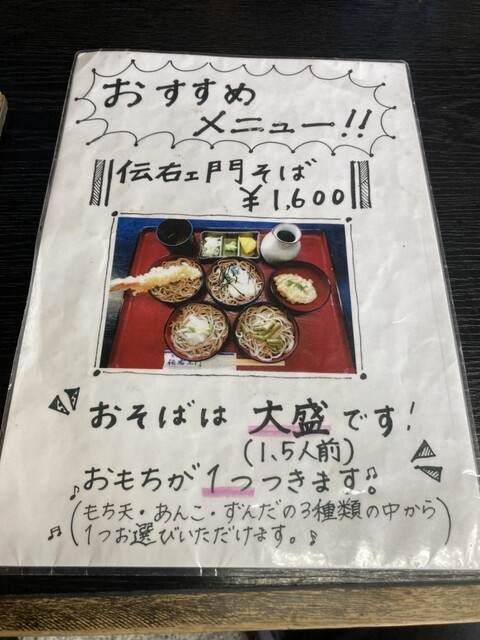 おすすめ
メニュー!!
伝右ェ門そば
¥1,600
伝右エ門
おそばは 大盛です!
(1.5人前)
おもちが1つつきます。
(もち天・あんこ・ずんだの3種類の中から
1つお選びいただけます。)